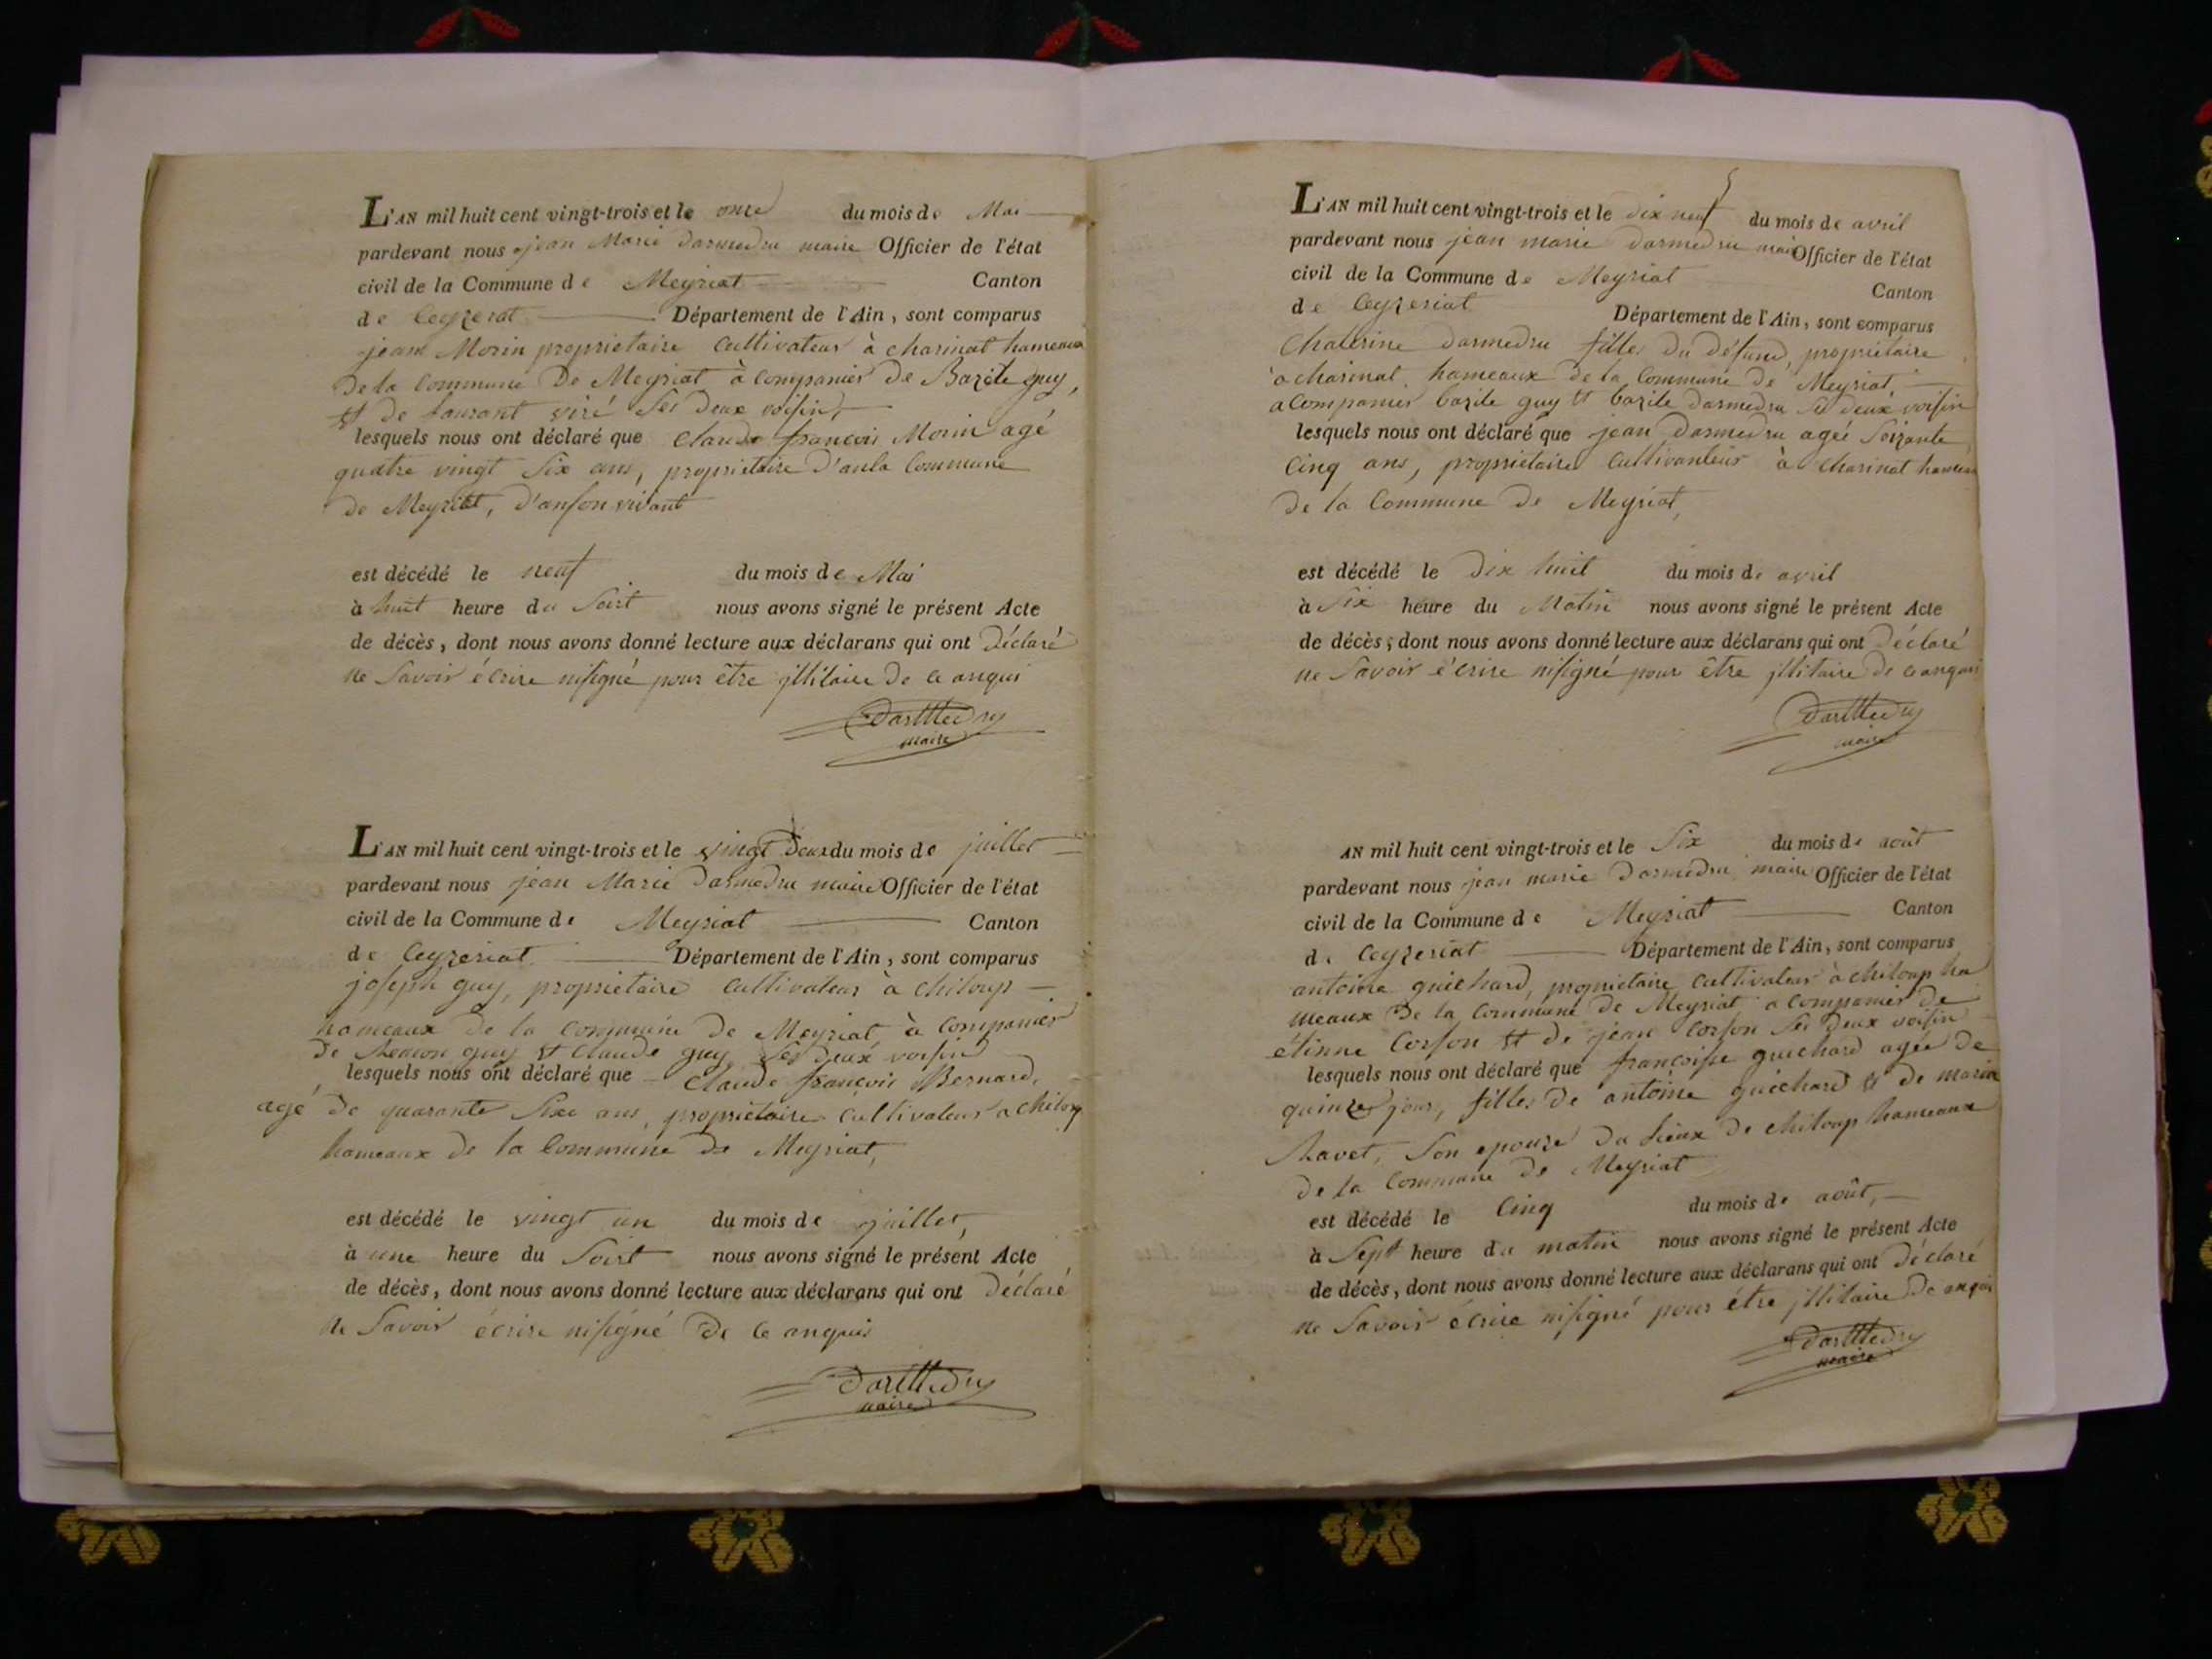 L'AN mil huit cent vingt-trois et le onze du mois de Mai
pardevant nous jean Marie darmedru maire Officier de l'état
civil de la Commune de Meyriat Canton
de Ceyzerat Département de l'Ain, sont comparus
jean Morin proprietaire Cultivateur à charinat hameaux
de la Commune de Meyriat à Companier de Bazile guy,
et de Laurant viré Ses deux voisin,
lesquels nous ont déclaré que Claude françois Morin agé
quatre vingt Six ans, proprietaire d'anla Commune
de Meyriat, d'anson vivant
est décédé le neuf du mois de Mai
à huit heure du Soirt nous avons signé le présent Acte
de décès, dont nous avons donné lecture aux déclarans qui ont déclaré
ne Savoir écrire nisigné pour être jllitaire de ce anquis
darMedru
maire
L'AN mil huit cent vingt-trois et le vingt deux du mois de juillet
pardevant nous jean Marie darmedru maire Officier de l'état
civil de la Commune de Meyriat Canton
de Ceyzeriat Département de l'Ain, sont comparus
joseph guy, proprietaire Cultivateur à Chiloup
hameaux de la Commune de Meyriat à Companier
de guy et Claude guy Ses deux voisin
lesquels nous ont déclaré que Claude françois Bernard,
agé de quarante Sixe ans, proprietaire Cultivateur a Chiloup
hameaux de la Commune de Meyriat,
est décédé le vingt un du mois de juillet,
à une heure du Soirt nous avons signé le présent Acte
de décès, dont nous avons donné lecture aux déclarans qui ont déclaré
ne Savoir écrire nisigné de ce anquis
darMedru
maire
L'AN mil huit cent vingt-trois et le dix neuf du mois de avril
pardevant nous jean marie darmedru maire Officier de l'état
civil de la Commune de Meyriat Canton
de Ceyzeriat Département de l'Ain, sont comparus
Chaterine darmedru filles du défund, propriétaire
à charinat hameaux de la Commune de Meyriat,
a Companier bazile guy et bazile darmedru Ses deux voisin
lesquels nous ont déclaré que jean darmedru agée Soizante
Cinq ans, propriétaire Cultivanteur à Charinat hameau
de la Commune de Meyriat,
est décédé le dix huit du mois de avril
à Six heure du Matin nous avons signé le présent Acte
de décès, dont nous avons donné lecture aux déclarans qui ont déclaré
ne Savoir écrire nisigné pour être jllitaire de ce anquis
darMedru
maire
AN mil huit cent vingt-trois et le Six du mois de août
pardevant nous jean marie darmedru maire Officier de l'état
civil de la Commune de Meyriat Canton
de Ceyzeriat Département de l'Ain, sont comparus
antoine guichard, proprietaire Cultivateur à chiloup ha
meaux de la Commune de Meyriat a Companier de
étinne Corson et de jean Corson Ses deux voisin
lesquels nous ont déclaré que françoise guichard agée de
quinze jour, filles de antoine guichard et de marie
havet, Son epouze du Lieux de chiloup hameaux
de la Commune de Meyriat
est décédé le Cinq du mois de août,
à Sept heure du matin nous avons signé le présent Acte
de décès, dont nous avons donné lecture aux déclarans qui ont déclaré
ne Savoir écrire nisigné pour étre jllitaire de anquis
darMedru
maire